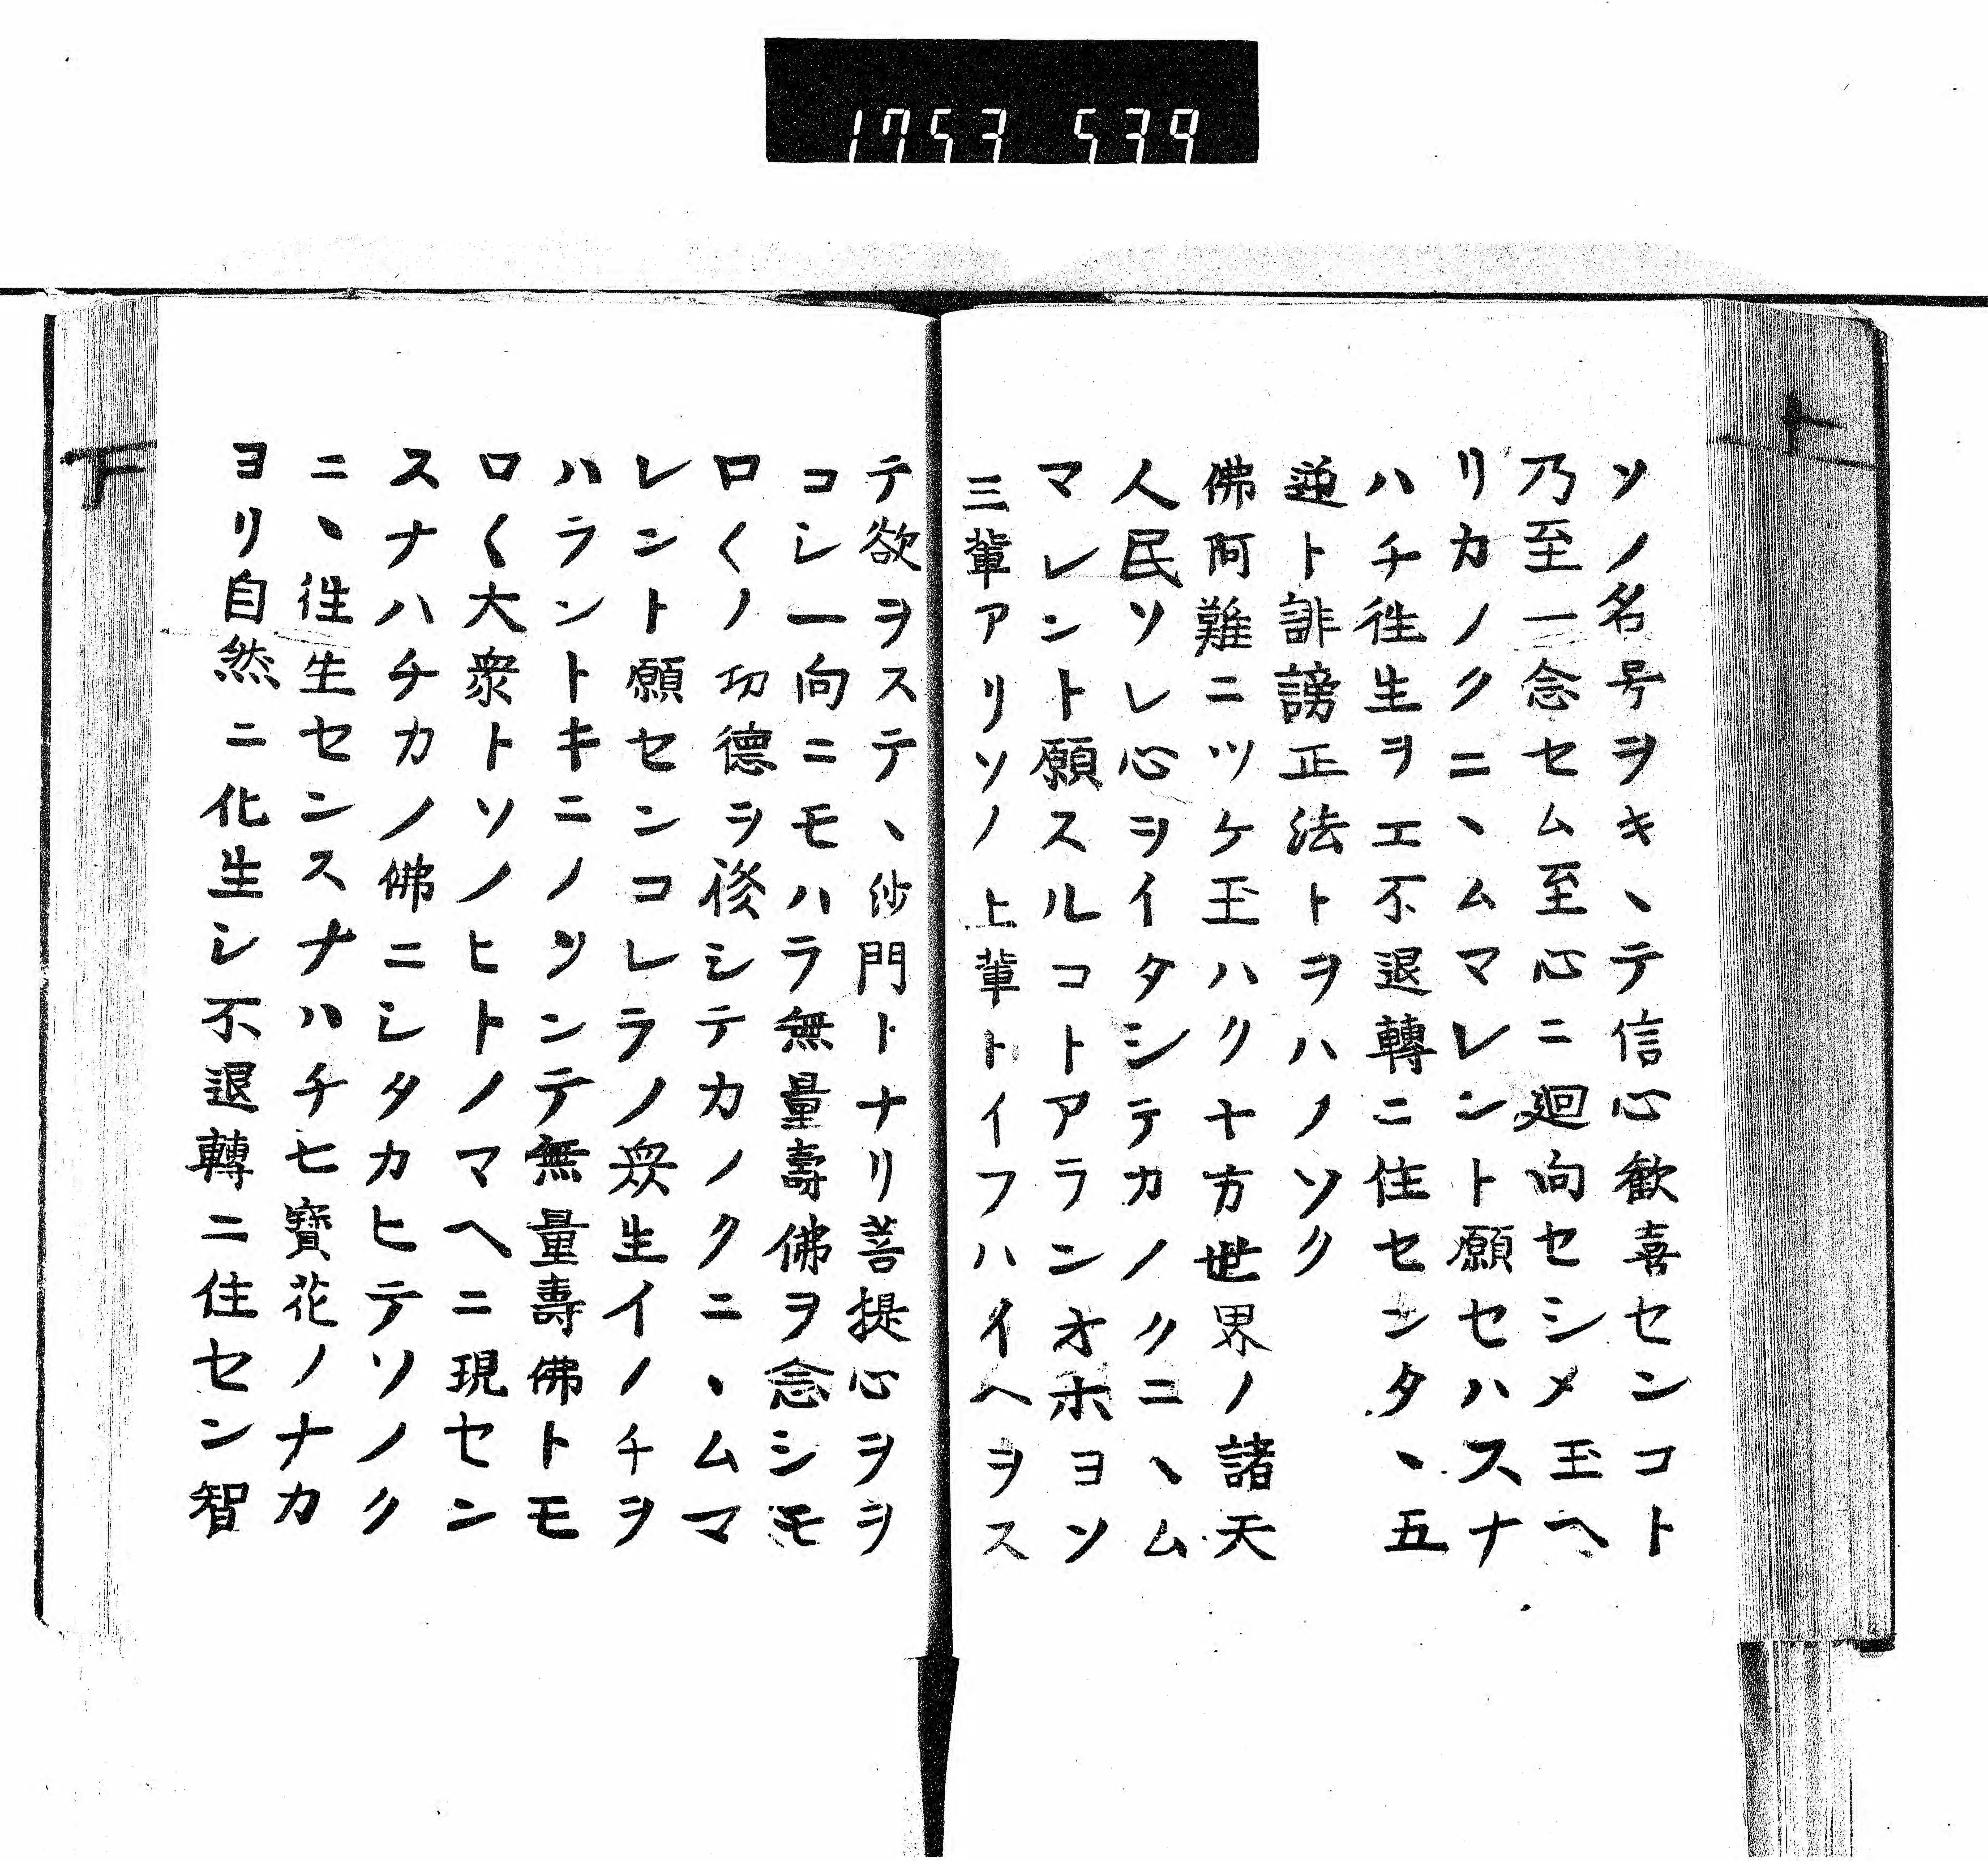 1753 539
ソノ名号ヲキヽテ信心歓喜センコト
乃至一念セム至心ニ廻向セシメ玉ヘ
リカノクニヽムマレント願セハスナ
ハチ徃生ヲエ不退轉ニ住センタヽ五
逆ト誹謗正法トヲハノソク
佛阿難ニツケ玉ハク十方世界ノ諸天
人民ソレ心ヲイタシテカノクニヽム
マレント願スルコトアランオホヨソ
三輩アリソノ上輩トイフハイヘヲス
テ欲ヲステヽ沙門トナリ菩提心ヲヲ
コシ一向ニモハラ無量壽佛ヲ念シモ
ロ〱ノ功德ヲ修シテカノクニヽムマ
レント願センコレラノ衆生イノチヲ
ハラントキニノソンテ無量壽佛トモ
ロ〱大衆トソノヒトノマヘニ現セン
スナハチカノ佛ニシタカヒテソノク
ニヽ徃生センスナハチ七寶花ノナカ
ヨリ自然ニ化生シ不退轉ニ住セン智